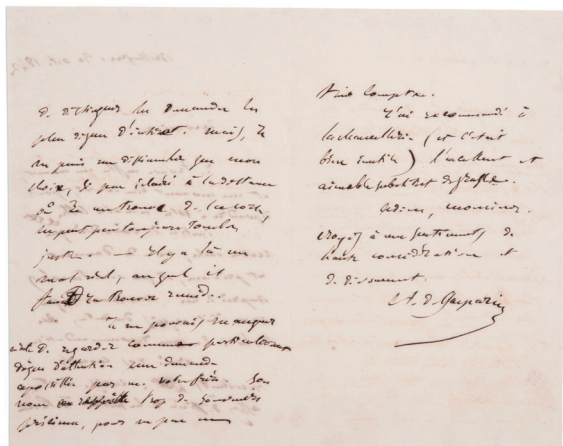 de distinguer les demandes les
plus dignes d'intérêt. mais, je
ne puis me dissimuler que mon
choix, si peu éclairé à la distance
où je me trouve de
ne peut pas toujours tomber
juste. — il y a là un
mal réel, auquel il
faut trouver remède.
Je ne pouvais manquer
de regarder comme particulièrement
dignes d'attention une demande
apostillée par m. votre frère. Son
nom rappelle trop de souvenirs
précieux, pour ne pas en
tenir compte.
J'ai recommandé à
la chancellerie (et c'était
bien inutile) l'excellent et
aimable substitut de
Adieu, monsieur,
croyez à mes sentiments de
haute considération et
de dévouement.
A. de Gasparin